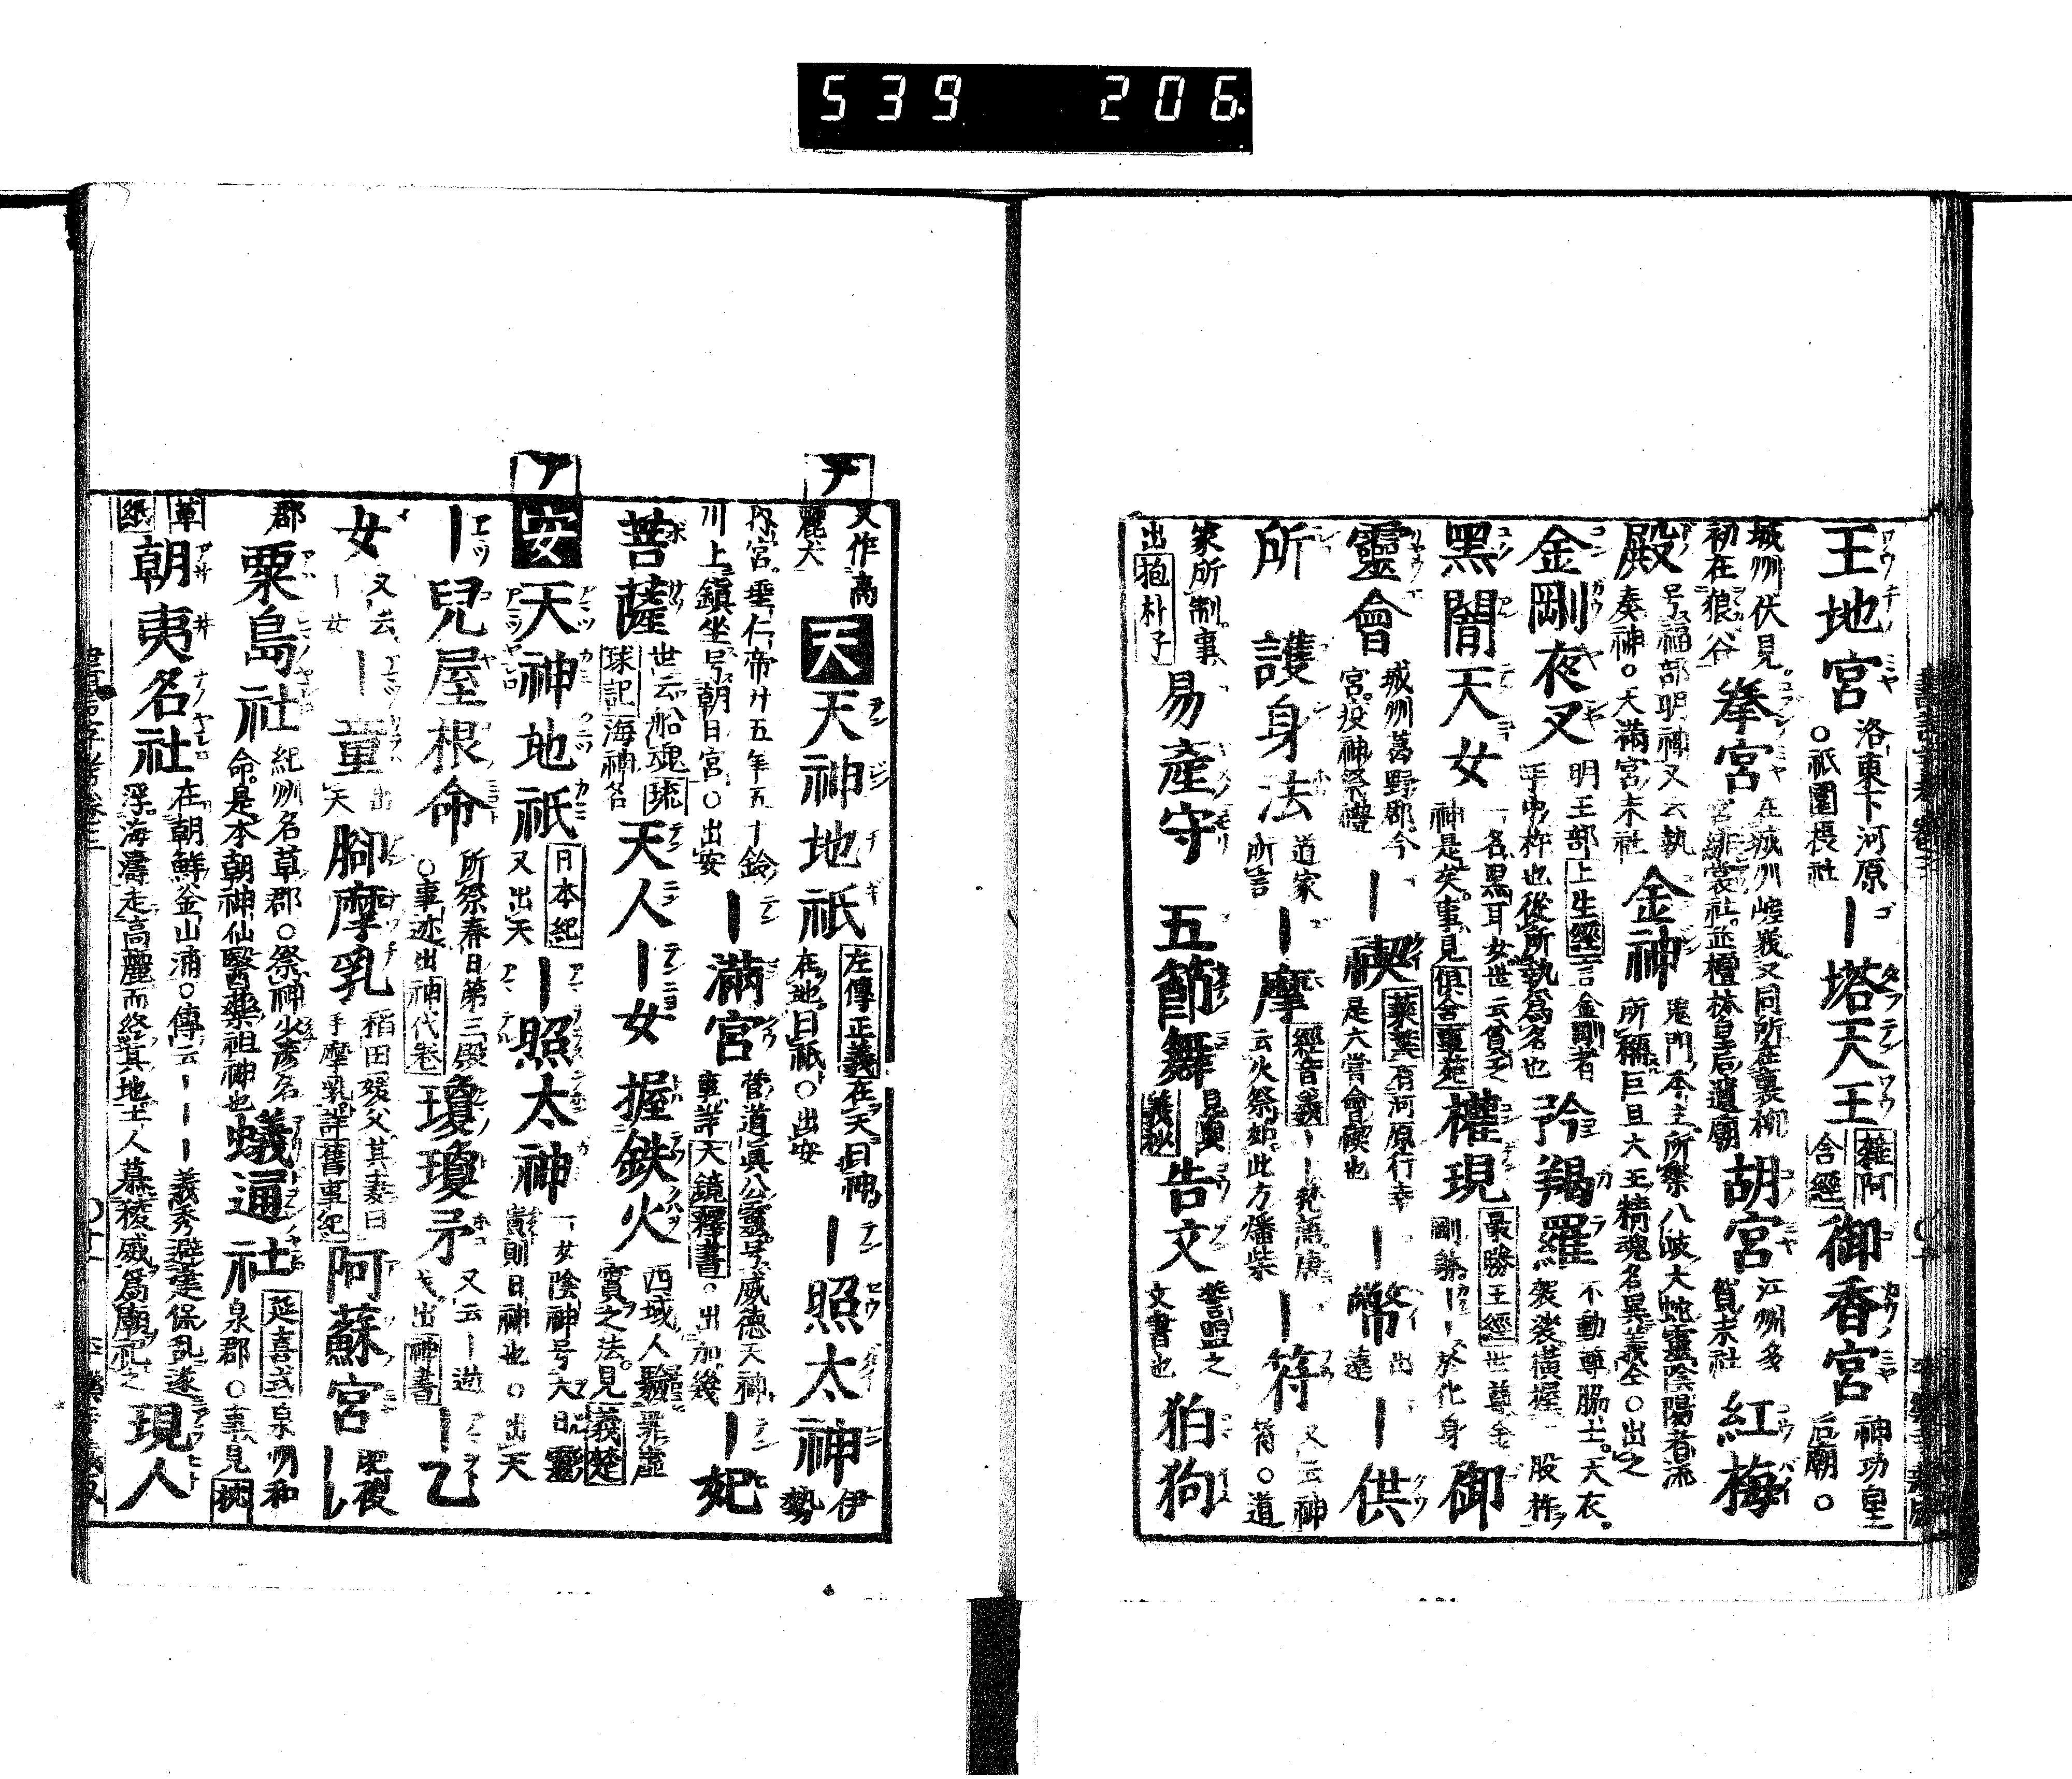 539 206
王地宮 洛東下河原
○祇園末社 ｜塔天王 雜阿
含經 御香宮 神功皇
后廟○
城州伏見
初在狼谷 拳宮 在城州嵯峨又同所在裏柳
宮緋裳社並檀林皇后遺廟 胡宮 江州多
賀末社 紅梅
殿 号福部明神又云執
奏神○天滿宮末社 金神 鬼門本主所祭八岐大蛇靈陰陽者流
所稱巨旦大王精魂名異義全○出之
金剛夜叉 明王部上生經言金剛者
手中杵也從所執爲名也 矜羯羅 不動尊脇士天衣
袈裟橫握一股杵
黑闇天女 一名黑耳女世云貧乏
神是矣事見俱舍 權現 最勝王經世尊金
剛躰｜於化身 御
靈會 城州葛野郡今
宮疫神祭禮 ｜禊 有河原行幸
是六嘗會禊也 ｜幣 出
遠 ｜供
所 護身法 道家
所言 ｜摩 經音義｜｜梵語唐
云火祭如此方燔柴 ｜符 又云神
符○道
家所制事
出抱朴子 易產守 五節舞 告文 誓盟之
文書也 狛狗
テ
又作高
麗犬 天 天神地祇 左傳正義在天曰神
在地曰祇○出安 ｜照太神 伊
勢
內宮垂仁帝廿五年五十鈴
川上鎭坐号朝日宮○出安 ｜滿宮 菅道眞公靈号威德天神
事詳天鏡釋書○出加幾 ｜妃
菩薩 世云船魂琉
球記海神名 天人 ｜女 握鉄火 西域人驗罪虛
實之法見義楚
ア
安 天神地祇 日本紀
又出天 ｜照太神 一女陰神号大日靈
貴則日神也○出天
｜兒屋根命 所祭春日第三殿
○事迹出神代卷 瓊瓊矛 又云｜逆
戈出神書 ｜乙
女 又云
｜女 ｜童 出
天 腳摩乳 稻田媛父其妻曰
手摩乳詳舊事紀 阿蘇宮 肥後
郡 粟島社 紀州名草郡○祭神少彥名
命是本朝神仙醫藥祖神也 蟻通社 延喜式泉州和
泉郡○事見枕
草
紙 朝夷名社 在朝鮮釜山浦○傳云｜｜｜義秀避建保亂遂
浮海濤走高麗而終其地土人慕稜威爲廟祀之 現人